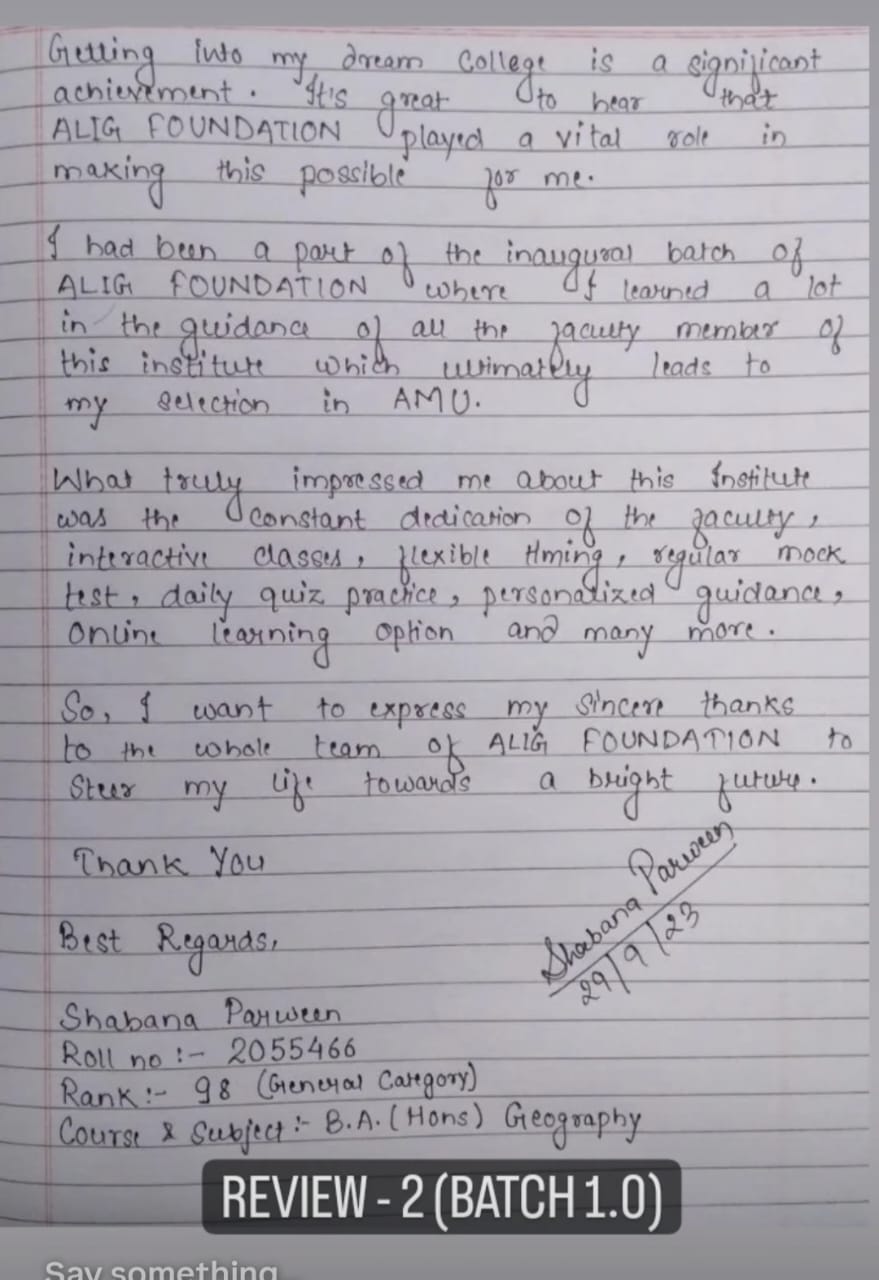 Getting into my dream College is a significant
achievement. It's great to hear that
ALIG FOUNDATION played a vital role in
making this possible for me.
I had been a part of the inaugural batch of
ALIG FOUNDATION where I learned a lot
in the guidance of all the faculty member of
this institute which ultimately leads to
my selection in AMU.
What truly impressed me about this Institute
was the constant dedication of the faculty,
interactive classes, flexible timing, regular mock
test, daily quiz practice, personalized guidance,
Online learning option and many more.
So, I want to express my sincere thanks
to the whole team of ALIG FOUNDATION to
Steer my life towards a bright future.
Thank You
Shabana Parween
29/9/23
Best Regards,
Shabana Parween
Roll no :- 2055466
Rank :- 98 (General Category)
Course & Subject :- B.A. (Hons) Geography
REVIEW - 2 (BATCH 1.0)
Say something